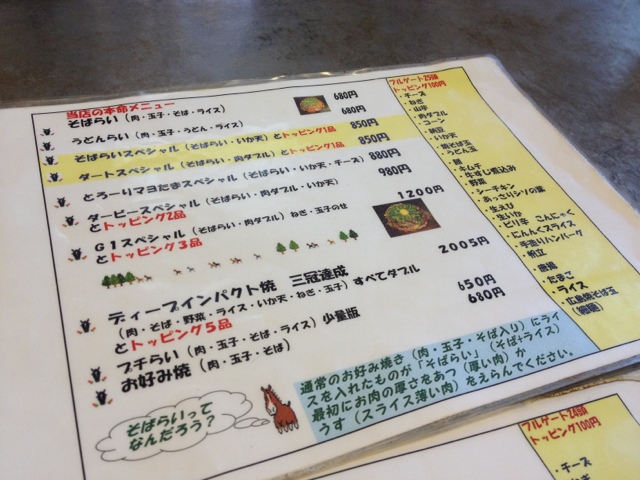 当店の本命メニュー
そばらい（肉・玉子・そば・ライス） 680円
うどんらい（肉・玉子・うどん・ライス） 680円
そばらいスペシャル（そばらい・いか天）とトッピング1品 850円
ダートスペシャル（そばらい・肉ダブル）とトッピング1品 850円
とろーりマヨたまスペシャル（そばらい・いか天・チーズ） 880円
ダービースペシャル（そばらい・肉ダブル・いか天） 980円
とトッピング2品
G1スペシャル（そばらい・肉ダブル）ねぎ・玉子のせ 1200円
とトッピング3品
ディープインパクト焼 三冠達成 2005円
（肉・そば・野菜・ライス・いか天・ねぎ・玉子）すべてダブル
とトッピング5品
プチらい（肉・玉子・そば・ライス）少量版 650円
お好み焼（肉・玉子・そば） 680円
そばらいって
なんだろう？
通常のお好み焼き（肉・玉子・そば入り）にライ
スを入れたものが「そばらい」（そば+ライス）
最初にお肉の厚さをあつ（厚い肉）か
うす（スライス薄い肉）をえらんでください。
フルゲート25頭
トッピング100円
・チーズ
・ねぎ
・山芋
・肉ダブル
・コーン
・納豆
・いか天
・焼そば玉
・うどん玉
・餅
・キムチ
・牛すじ煮込み
・野菜
・シーチキン
・あっさりシソの葉
・生えび
・生いか
・ピリ辛 こんにゃく
・にんにくスライス
・手造りハンバーグ
・帆立
・唐揚
・たまご
・ライス
・広島焼そば玉
（細麺）
フルゲート24頭
トッピング100円
・チーズ